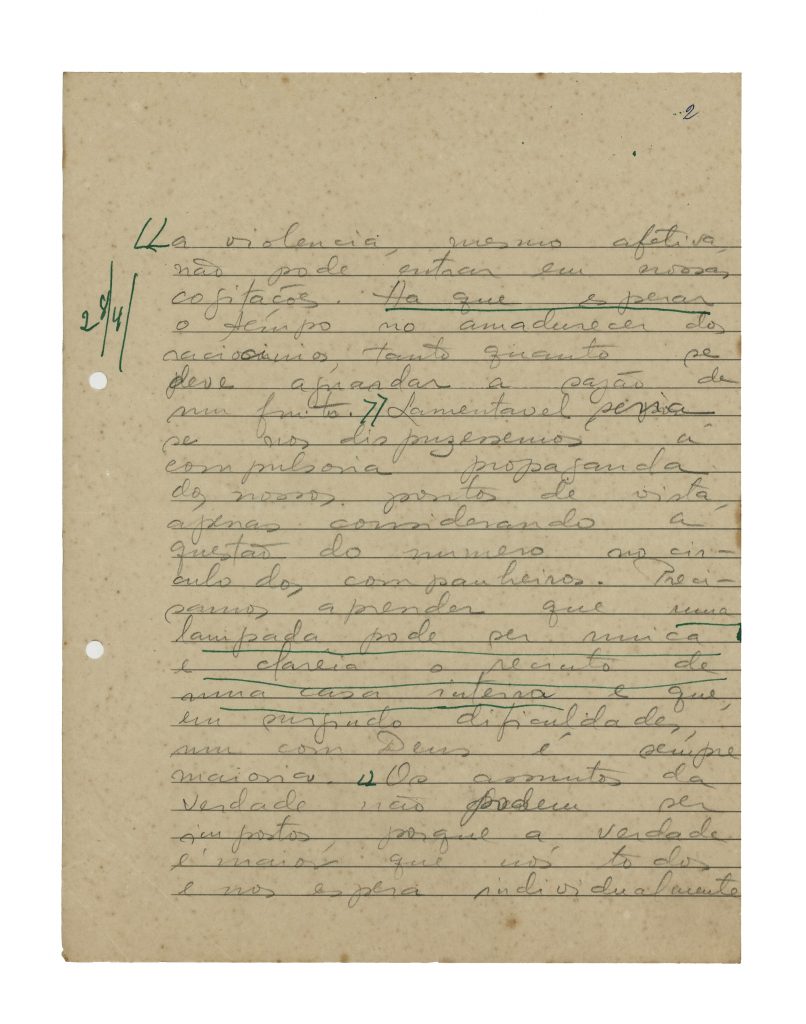 2
"A violencia, mesmo afetiva,
não pode entrar em nossas
28/4/
cogitações. Ha que esperar
o tempo no amadurecer dos
raciocinios, tanto quanto se
deve aguardar a sazão de
um fruto." Lamentavel seria
se nos dispuzessemos á
compulsoria propaganda
dos nossos pontos de vista,
apenas considerando a
questão do numero no cir-
culo dos companheiros. Preci-
samos aprender que uma
lampada pode ser unica
e clareia o recinto de
uma casa inteira e que,
em surgindo dificuldades,
um com Deus é sempre
maioria. "Os assuntos da
verdade não podem ser
impostos, porque a verdade
é maior que nós todos
e nos espera individualmente